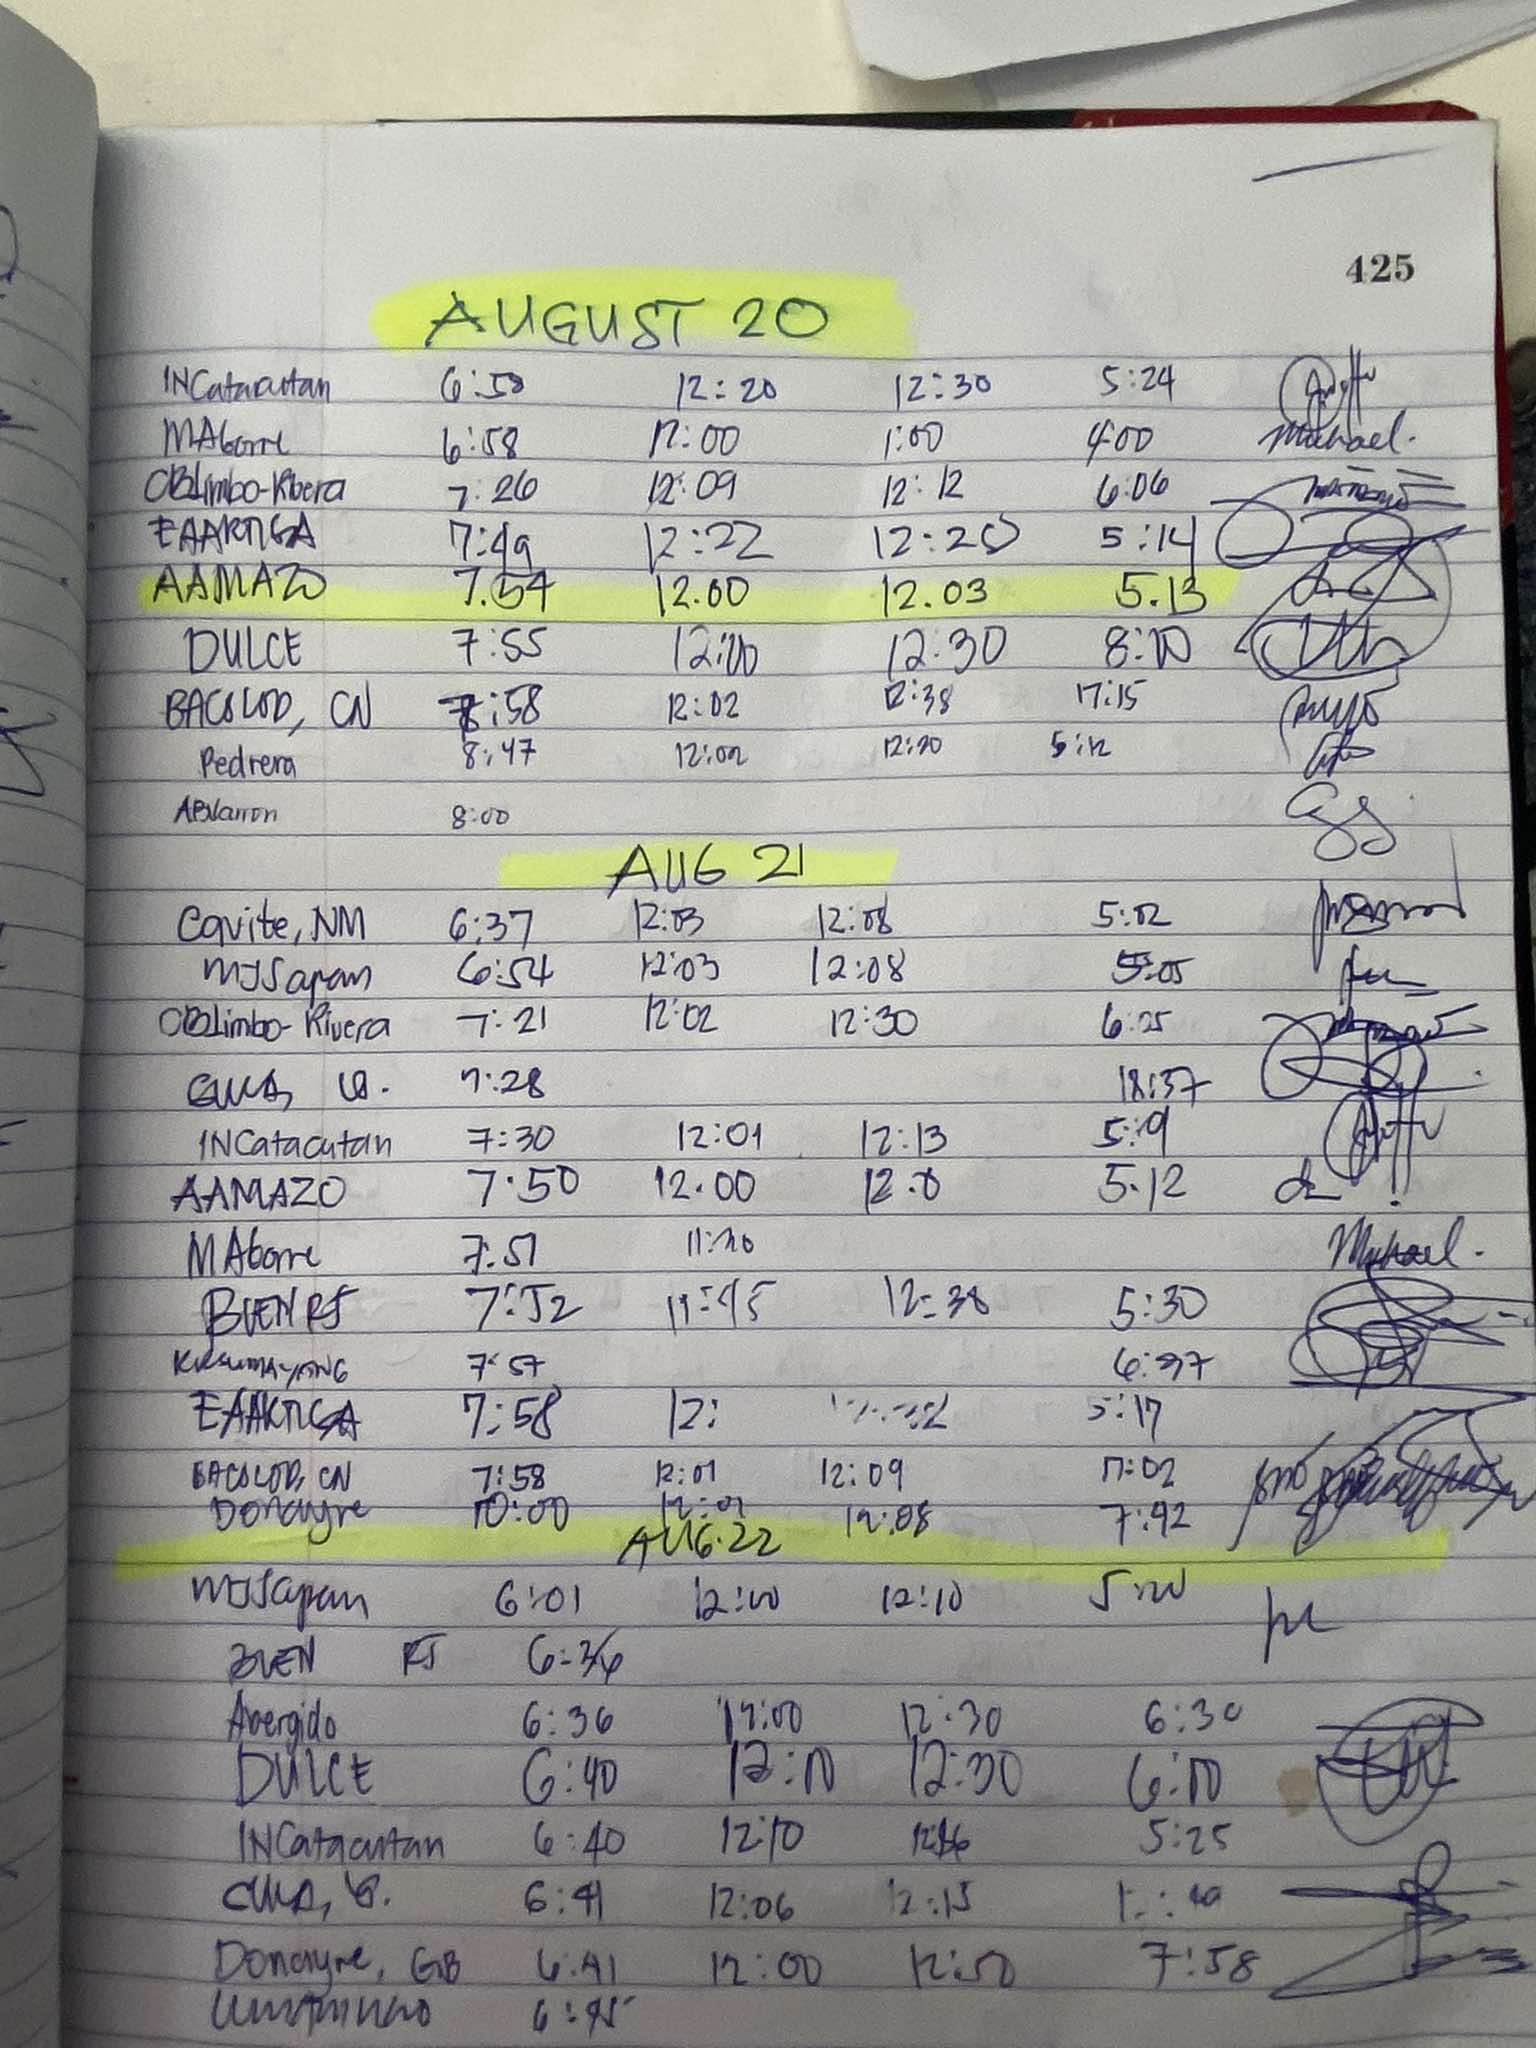 425
AUGUST 20
INCatacutan 6:58 12:20 12:30 5:24
MAborre 6:58 12:00 1:00 4:00 Michael.
OBLimbo-Rivera 7:26 12:09 12:12 6:06
EAARTIGA 7:49 12:22 12:25 5:14
AAMAZO 7.54 12.00 12.03 5.13
DULCE 7:55 12:00 12:30 8:00
BACOLOD, CN 7:58 12:02 12:38 17:15
Pedrera 8:47 12:02 12:20 5:12
8:00
AUG 21
Cavite, NM 6:37 12:03 12:08 5:02
MJSapan 6:54 12:03 12:08 5:05
OBLimbo-Rivera 7:21 12:02 12:30 6:25
7:28 18:37
INCatacutan 7:30 12:01 12:13 5:19
AAMAZO 7.50 12.00 5.12
MAborre 7:51 Michael.
BUEN RJ 7:52 11:45 12:38 5:30
7:57
EAARTIGA 7:58 12: 5:17
BACOLOD, CN 7:58 12:01 12:09
Donayre 10:00 12:02 12:08 7:42
AUG. 22
MJSapan 6:01 12:00 12:10 5:20
BUEN RJ 6:36
Abergido 6:36 12:00 12:30 6:30
DULCE 6:40 12:00 12:30 6:00
INCatacutan 6:40 12:10 5:25
6:41 12:06 12:15
Donayre, GB 6:41 12:00 12:50 7:58
6:45